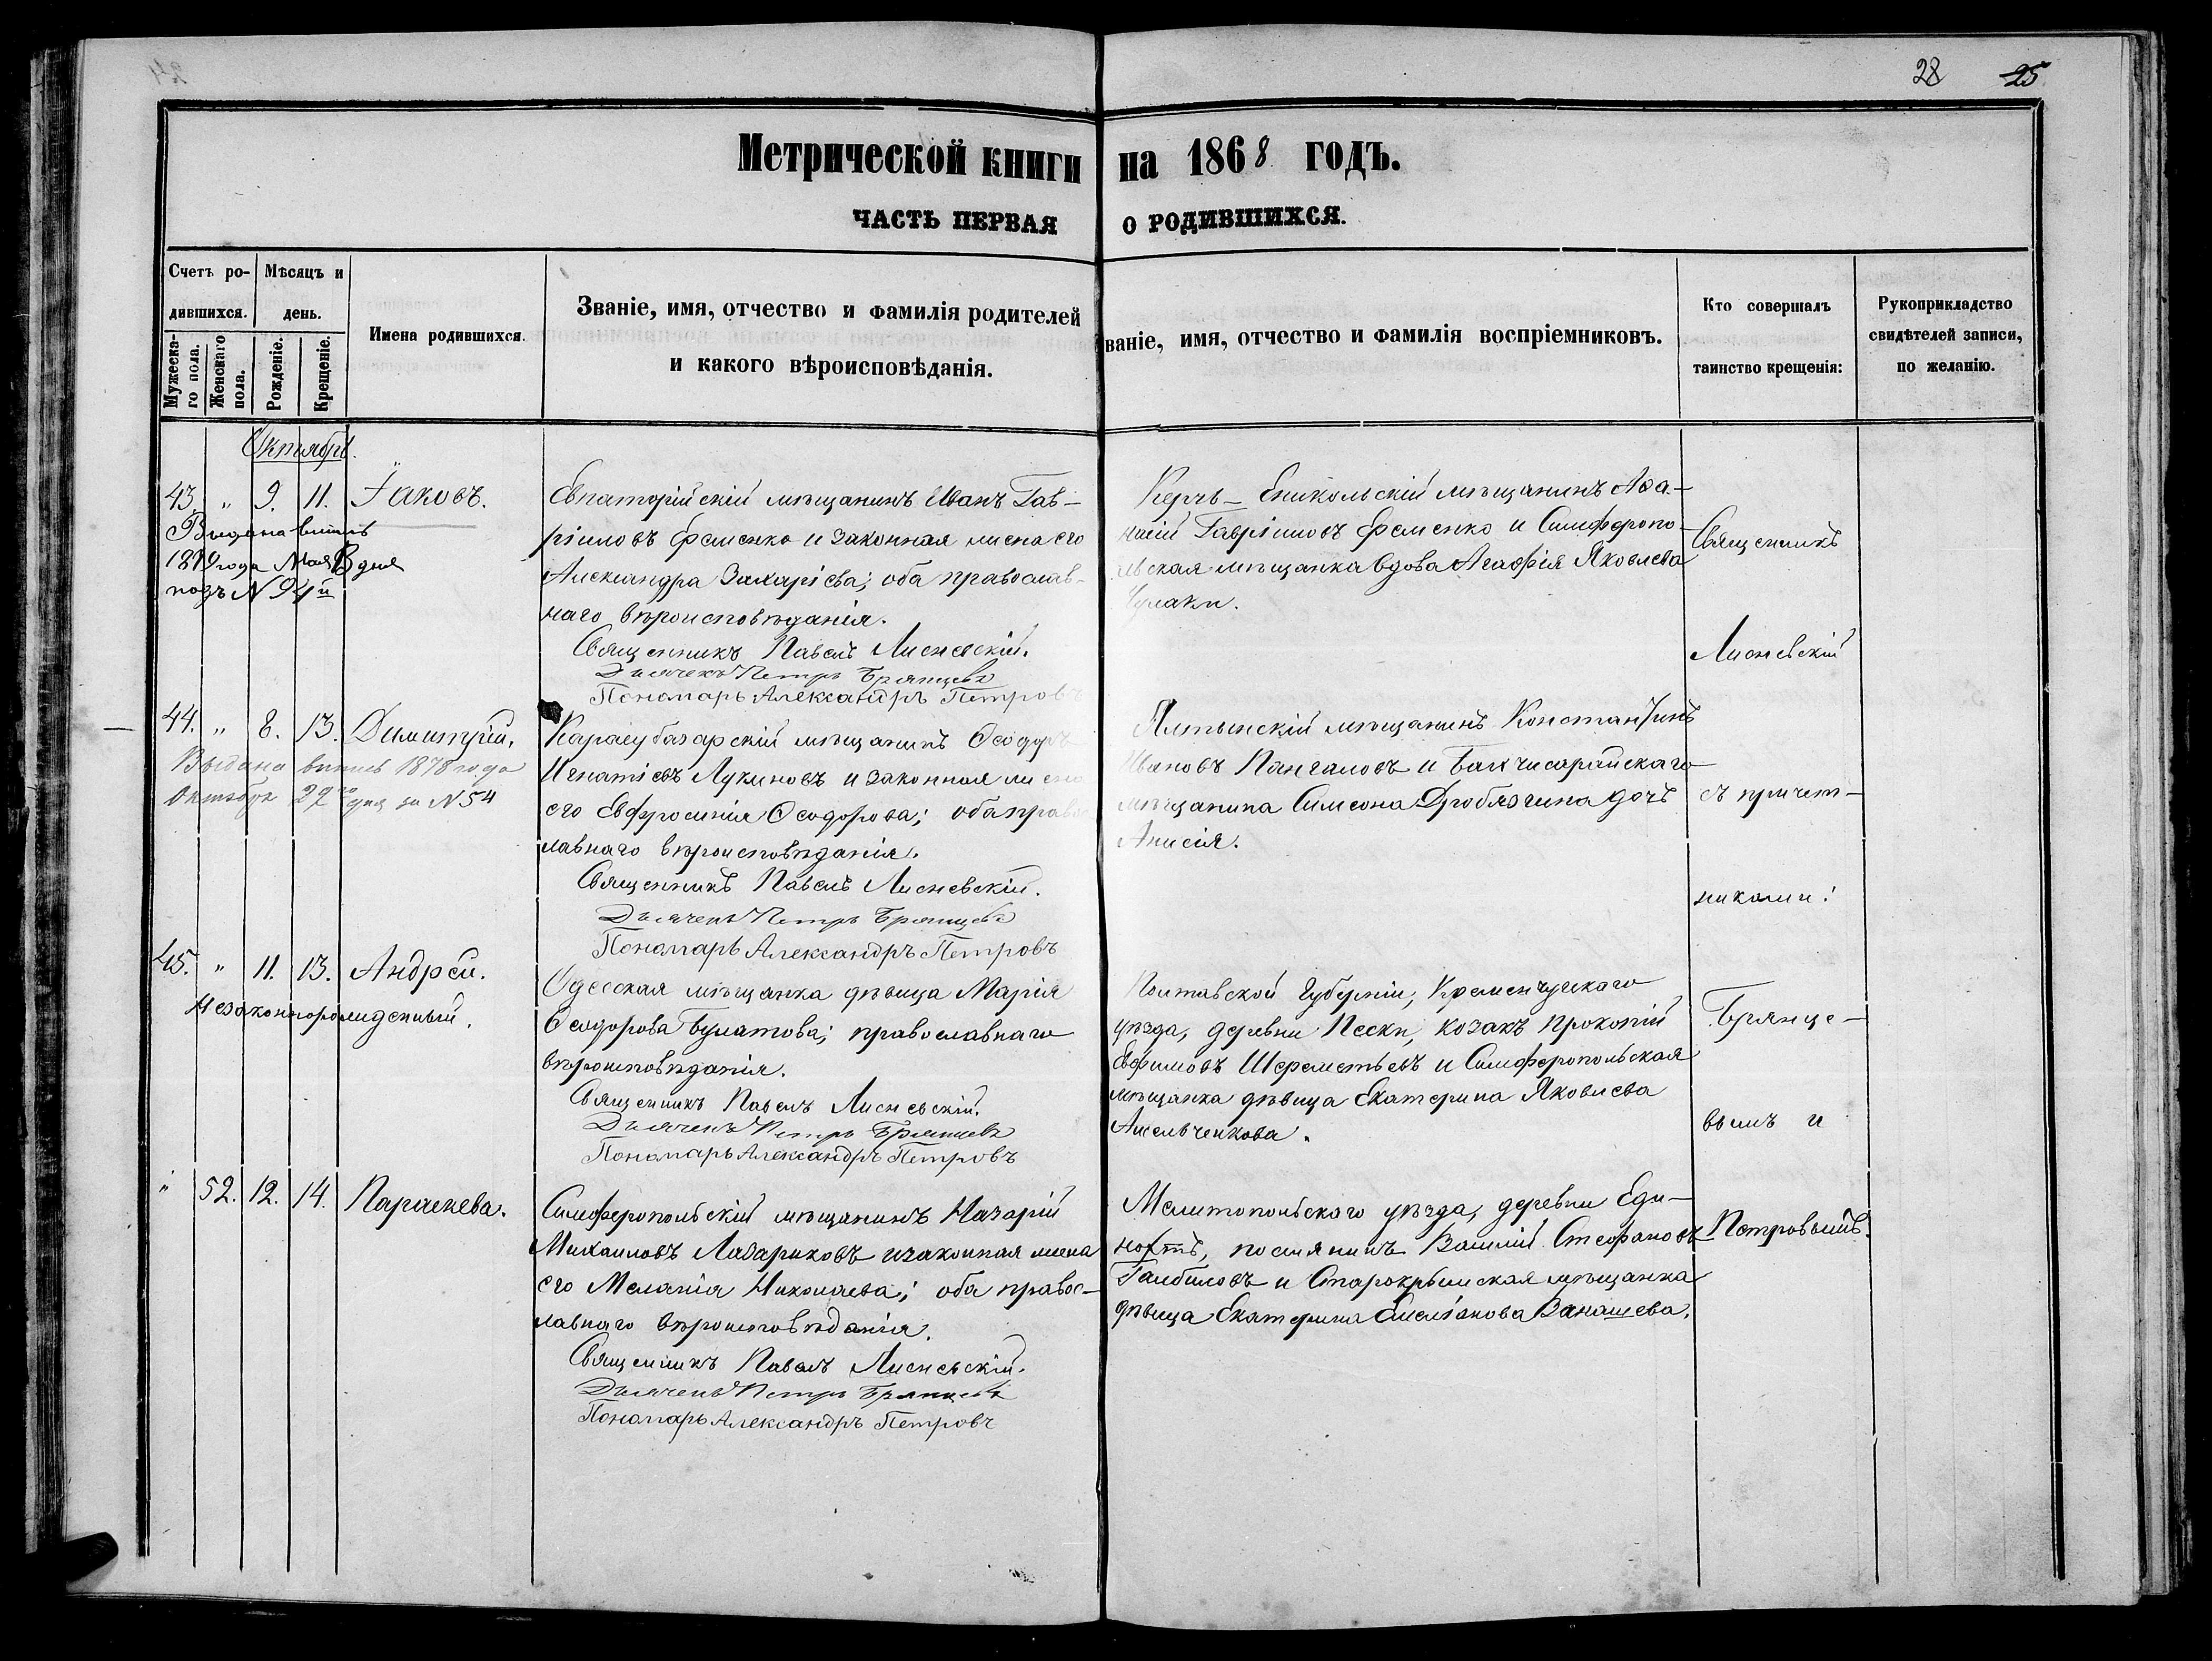 28 25
Метрической книги на 1868 годъ.
ЧАСТЬ ПЕРВАЯ О РОДИВШИХСЯ.
Счетъ ро-
дившихся.
Мужеска-
го пола.
Женскаго
пола.
Мѣсяцъ и
день.
Рожденіе.
Крещеніе.
Имена родившихся.
Званіе, имя, отчество и фамилія родителей
и какого вѣроисповѣданія.
Званіе, имя, отчество и фамилія воспріемниковъ.
Кто совершалъ
таинство крещенія:
Рукоприкладство
свидѣтелей записи,
по желанію.
Октябрь.
43. " 9. 11. Іаковъ.
Выдана выпись
года Мая дня
подъ N
Евпаторійскій мѣщанинъ Иванъ Гав-
ріиловъ Еременко и законная жена его
Александра Захаріева; оба православ-
наго вѣроисповѣданія.
Священникъ Павелъ Лисневскій.
Дьячекъ Петръ Брянцевъ
Пономарь Александръ Петровъ
Керчь-Еникольскій мѣщанинъ Аѳа-
насій Гавріиловъ Еременко и Симферопо-
льская мѣщанка вдова Агафія Яковлева
44. " 8. 13. Димитрій.
Выдана выпись 1878 года
Октября 22го дня за N 54
Карасубазарскій мѣщанинъ Ѳеодоръ
Игнатіевъ Лукиновъ и законная жена
его Евфросинія Ѳеодорова; оба право-
лавнаго вѣроисповѣданія.
Священникъ Павелъ Лисневскій.
Дьячекъ Петръ Брянцевъ
Пономарь Александръ Петровъ
Ялтынскій мѣщанинъ Константинъ
Ивановъ Пангаловъ и Бахчисарайскаго
мѣщанина Симеона Дроблягина дочь
Анисія.
45. " 11. 13. Андрей.
Незаконнорожденный.
Одесская мѣщанка дѣвица Марія
Ѳеодорова Булатова; православнаго
вѣроисповѣданія.
Священникъ Павелъ Лисневскій.
Дьячекъ Петръ Брянцевъ
Пономарь Александръ Петровъ
Полтавской Губерніи, Кременчугскаго
уѣзда, деревни Пески, козакъ Прокопій
Ефимовъ Шереметьевъ и Симферопольская
мѣщанка дѣвица Екатерина Яковлева
" 52. 12. 14. Параскева.
Симферопольскій мѣщанинъ Назарій
Михаиловъ Лазариковъ и законная жена
его Меланія Николаева; оба правос-
лавнаго вѣроисповѣданія.
Священникъ Павелъ Лисневскій.
Дьячекъ Петръ Брянцевъ
Пономарь Александръ Петровъ
Мелитопольскаго уѣзда, деревни Еди-
нохтъ, поселянинъ Василій Стефановъ
и Старокрымская мѣщанка
дѣвица Екатерина Емеліанова Ванашева.
Священникъ
Лисневскій
съ причет-
никами:
Брянце-
вымъ и
Петровымъ.